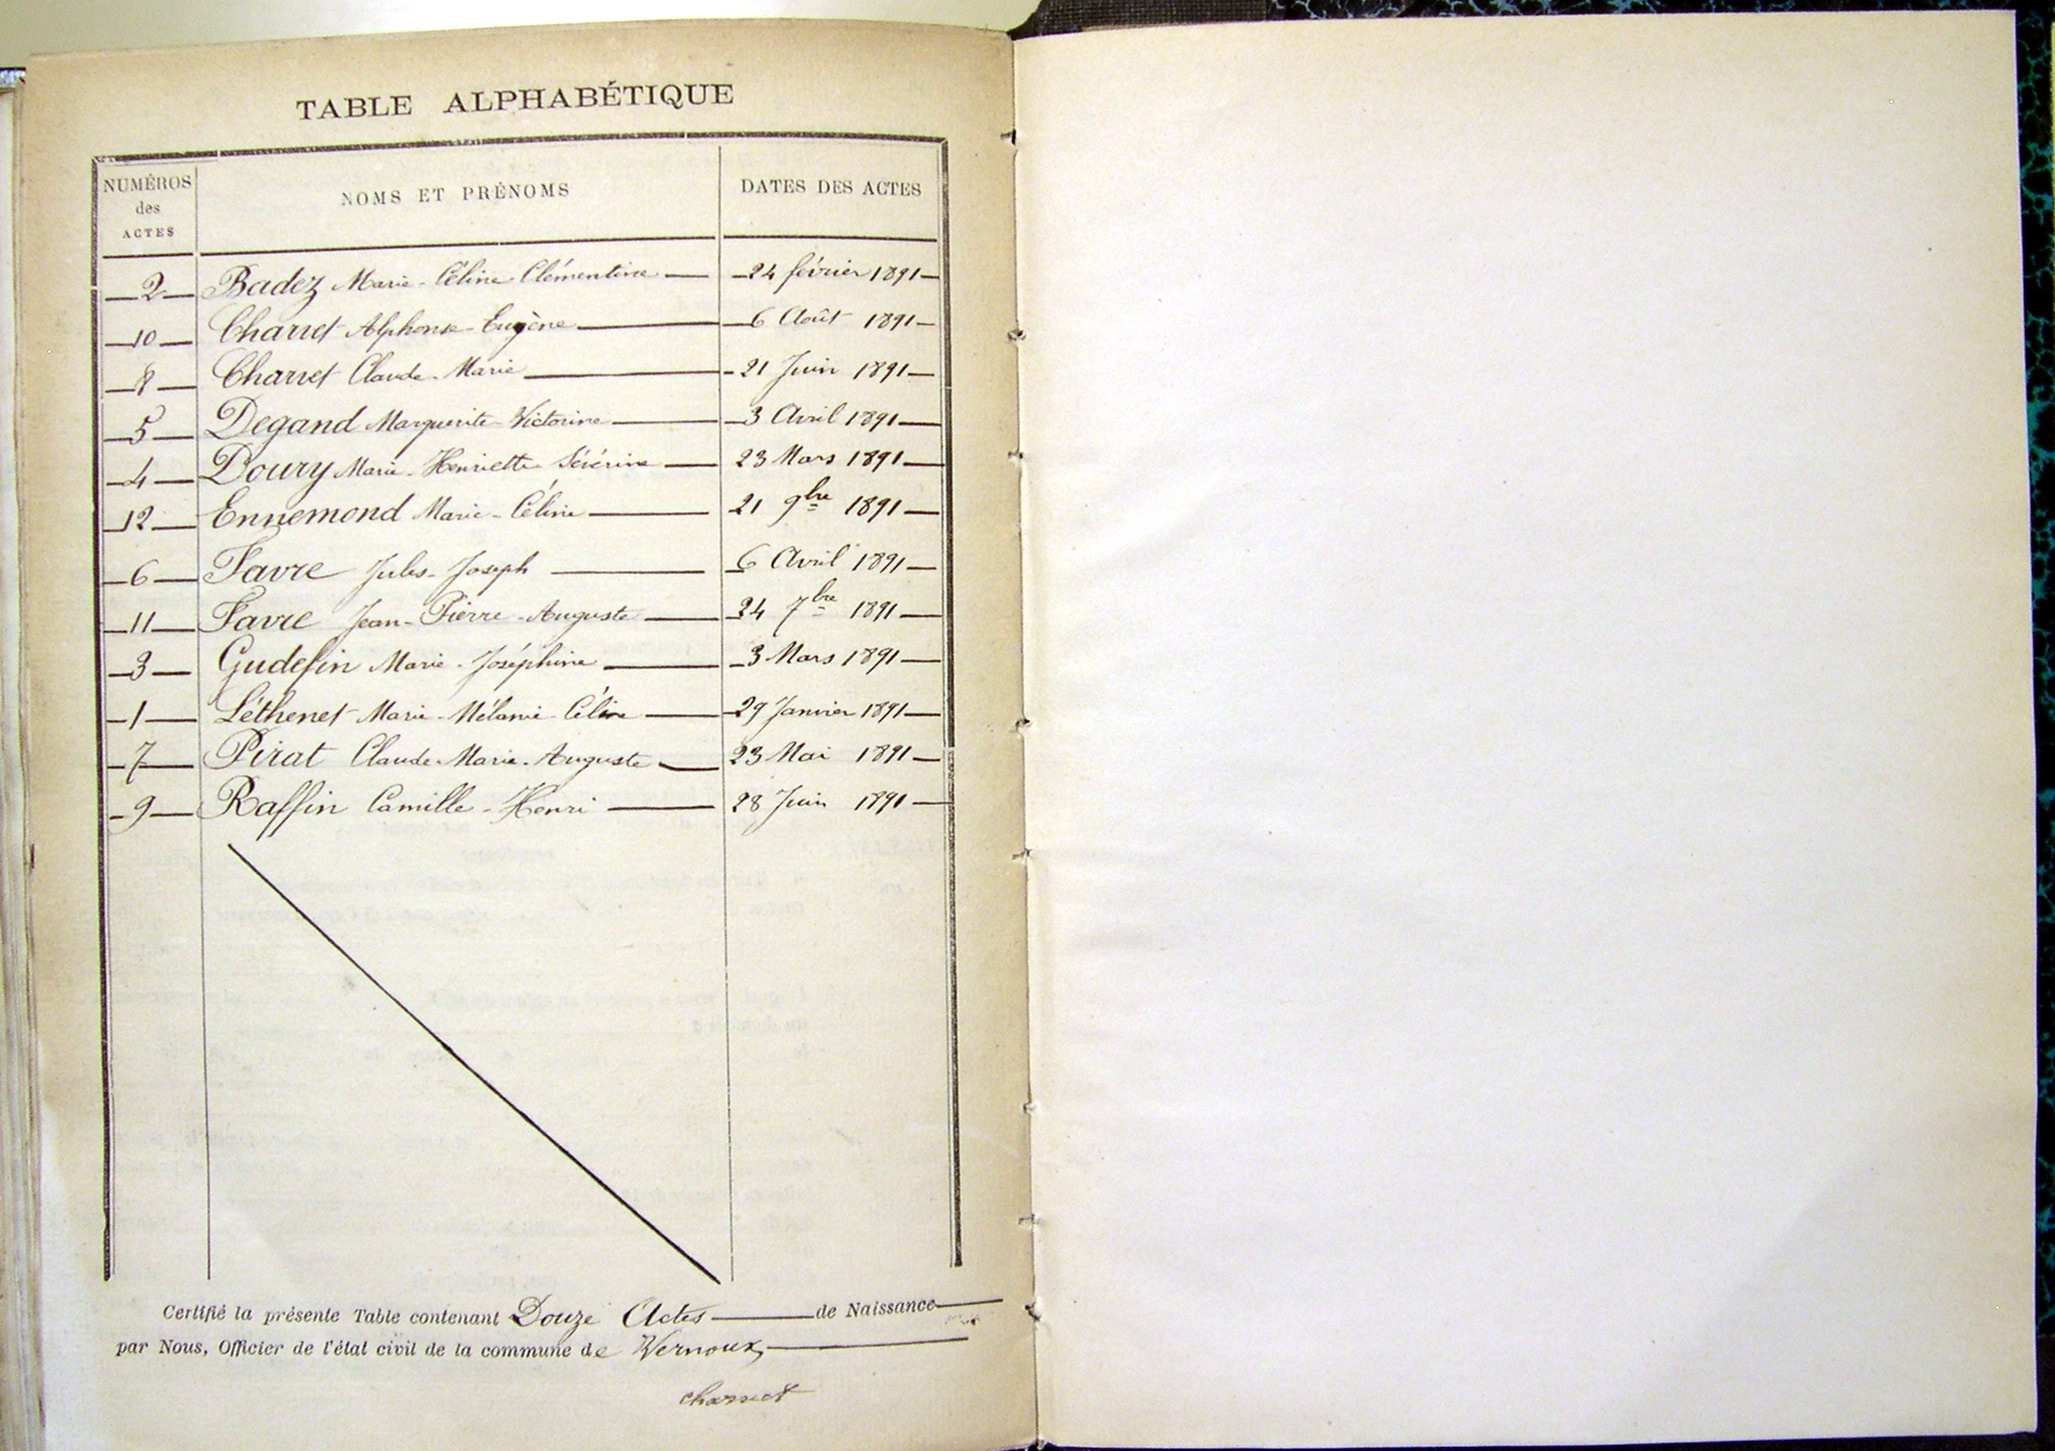 TABLE ALPHABÉTIQUE
NUMÉROS des ACTES NOMS ET PRÉNOMS DATES DES ACTES
2 Badez Marie-Céline Clémentine 24 février 1891
10 Charvet Alphonse-Eugène 6 Août 1891
8 Charvet Claude-Marie 21 Juin 1891
5 Degand Marguerite-Victorine 3 Avril 1891
4 Doury Marie-Henriette Sévérine 23 Mars 1891
12 Ennemond Marie-Céline 21 9bre 1891
6 Favre Jules-Joseph 6 Avril 1891
11 Favre Jean-Pierre-Auguste 24 7bre 1891
3 Gudefin Marie-Joséphine 3 Mars 1891
1 Léthenet Marie-Mélanie-Céline 29 Janvier 1891
7 Pirat Claude-Marie-Auguste 23 Mai 1891
9 Raffin Camille-Henri 28 Juin 1891
Certifié la présente Table contenant Douze Actes de Naissance
par Nous, Officier de l'état civil de la commune de Vernoux,
charvet